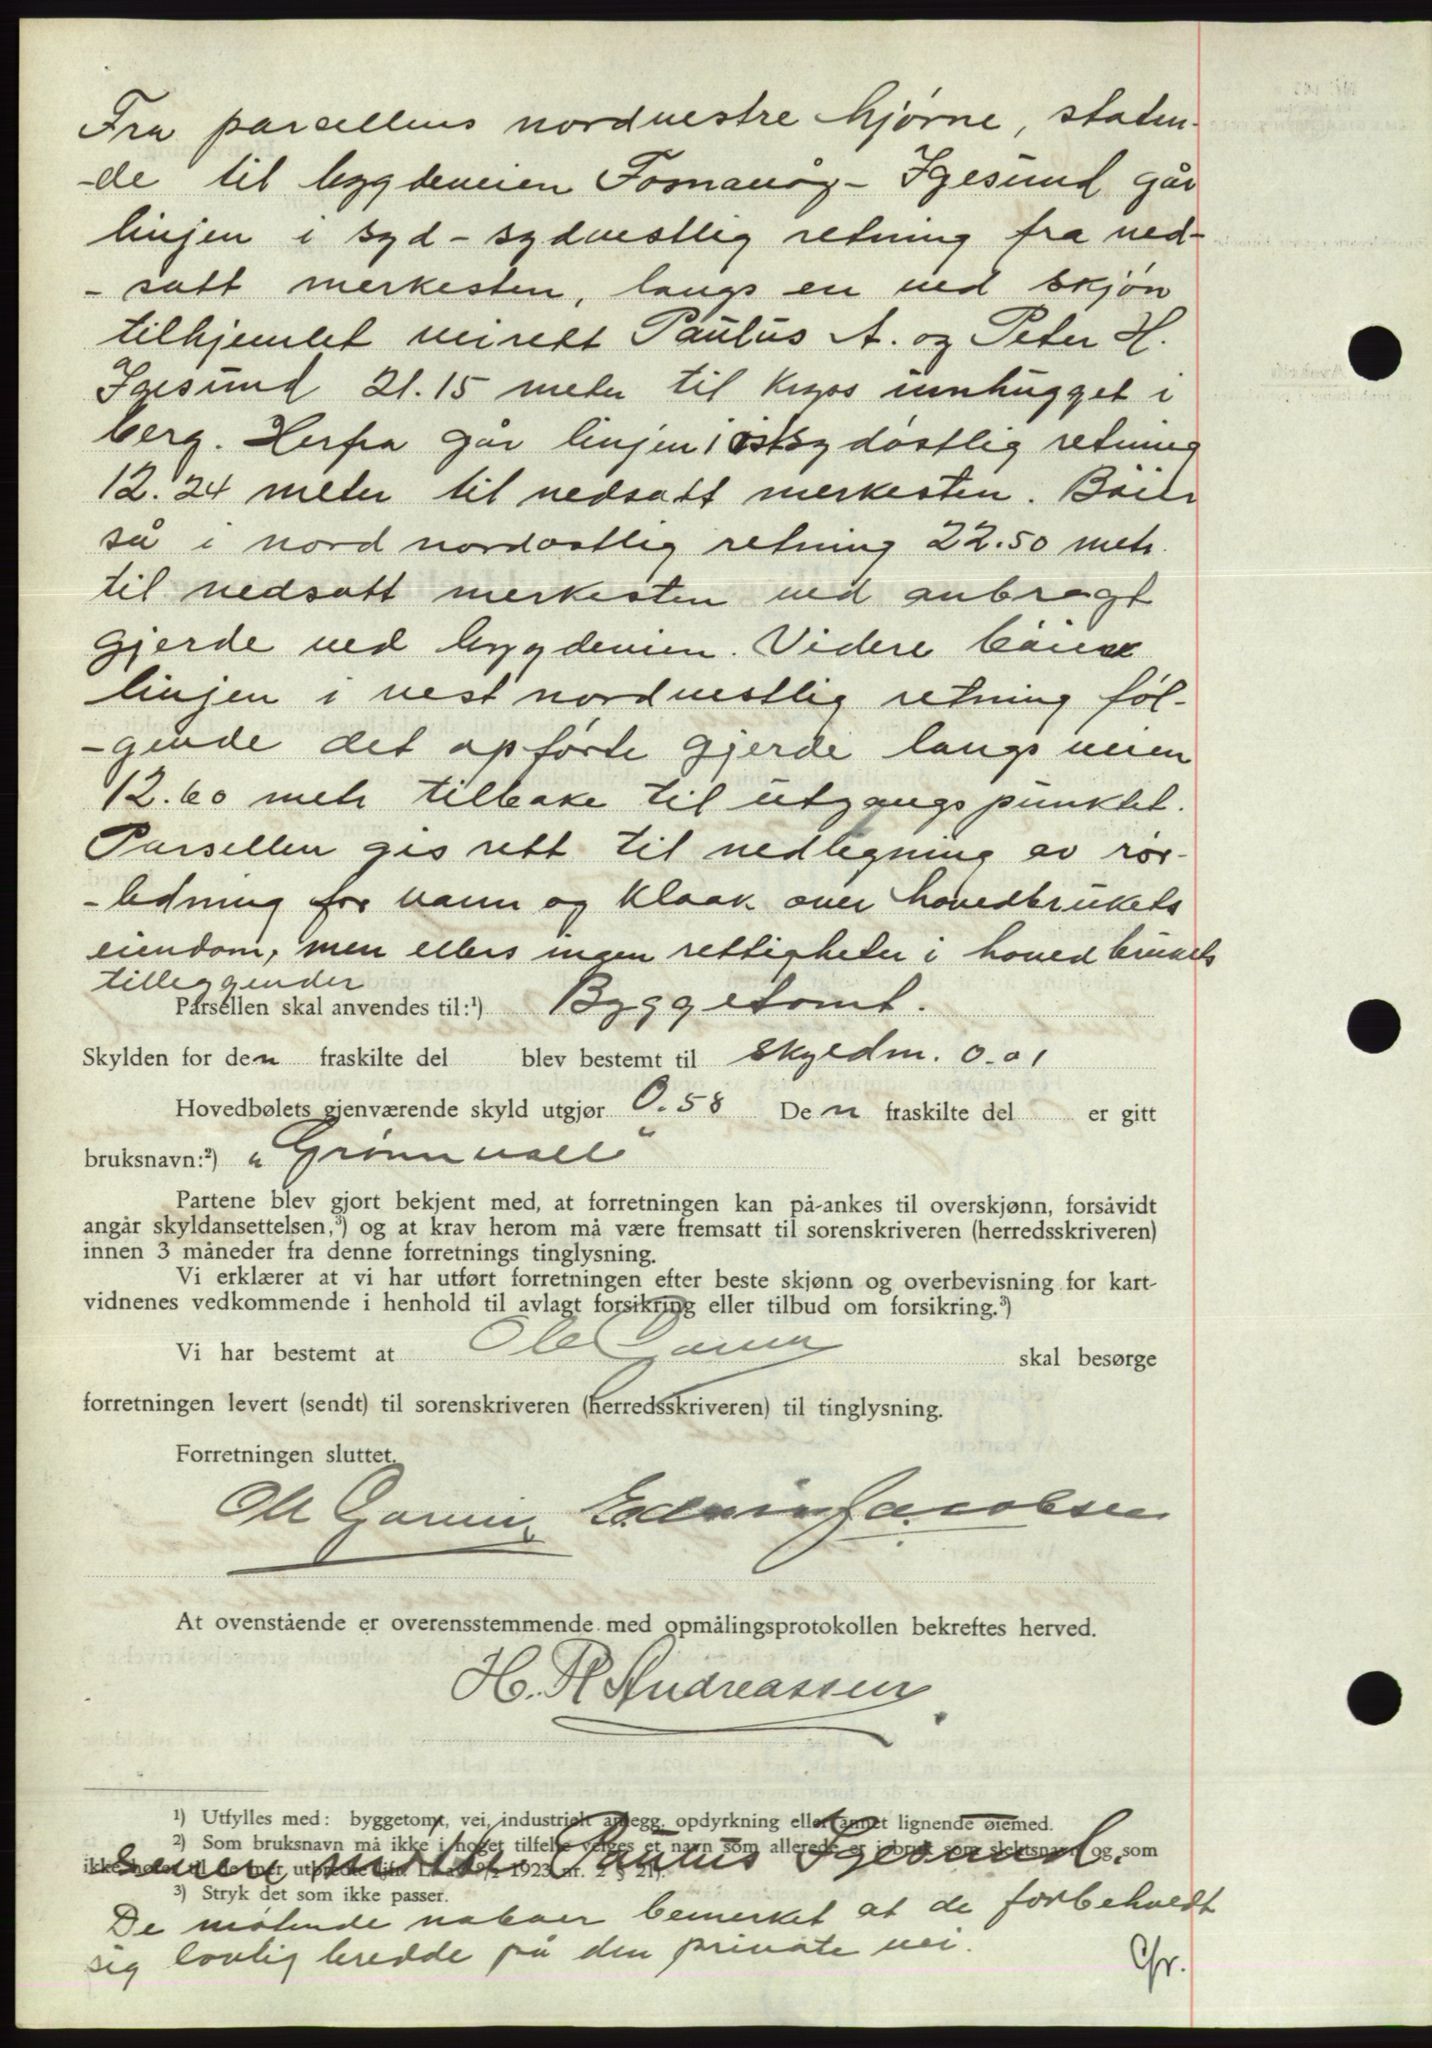 Fra parcellens nordvestre hjørne, støten-
-de til bygdeveien Fosnavåg- Igesund går
linjen i syd-sydvestlig retning fra ned-
-satt merkesten, langs en ved skjøn
tilhjemlet veirett Paulus A. og Peter H.
Igesund 21.15 meter til kryss innhugget i
berg. Herfra går linjen i østsydøstlig retning
12.24 meter til nedsatt merkesten. Bøier
så i nord nordøstlig retning 22.50 metr.
til nedsatt merkesten ved anbragt
gjerde ved bygdeveien. Videre bøier
linjen i vest nordvestlig retning føl-
-gende det opførte gjerde langs veien
12.60 metr tilbake til utgangspunktet.
Parsellen gis rett til nedlegning av rør-
-ledning for vann og kloak over hovedbrukets
eiendom, men ellers ingen rettigheter i hovedbrukets
tilleggender
Parsellen skal anvendes til:¹) Byggetomt.
Skylden for den fraskilte del blev bestemt til skyldm. 0.01
Hovedbølets gjenværende skyld utgjør 0.58 Den fraskilte del er gitt
bruksnavn:²) „Grønnvoll“
Partene blev gjort bekjent med, at forretningen kan på-ankes til overskjønn, forsåvidt
angår skyldansettelsen,³) og at krav herom må være fremsatt til sorenskriveren (herredsskriveren)
innen 3 måneder fra denne forretnings tinglysning.
Vi erklærer at vi har utført forretningen efter beste skjønn og overbevisning for kart-
vidnenes vedkommende i henhold til avlagt forsikring eller tilbud om forsikring.³)
Vi har bestemt at Ole Garnes skal besørge
forretningen levert (sendt) til sorenskriveren (herredsskriveren) til tinglysning.
Forretningen sluttet.
Ole Garnes Edvin Jacobsen
At ovenstående er overensstemmende med opmålingsprotokollen bekreftes herved.
H. P. Andreassen
¹) Utfylles med: byggetomt, vei, industrielt anlegg, opdyrkning eller annet lignende øiemed.
²) Som bruksnavn må ikke i noget tilfelle velges et navn som allerede er i bruk som slektsnavn og som
ikke hører til de mer utbredte (jfr. L. av 9/2 1923 nr. 2 § 21).
Paulus Igesund.
³) Stryk det som ikke passer.
De møtende naboer bemerket at de forbeholdt
sig lovlig bredde på den private vei.
Gr.